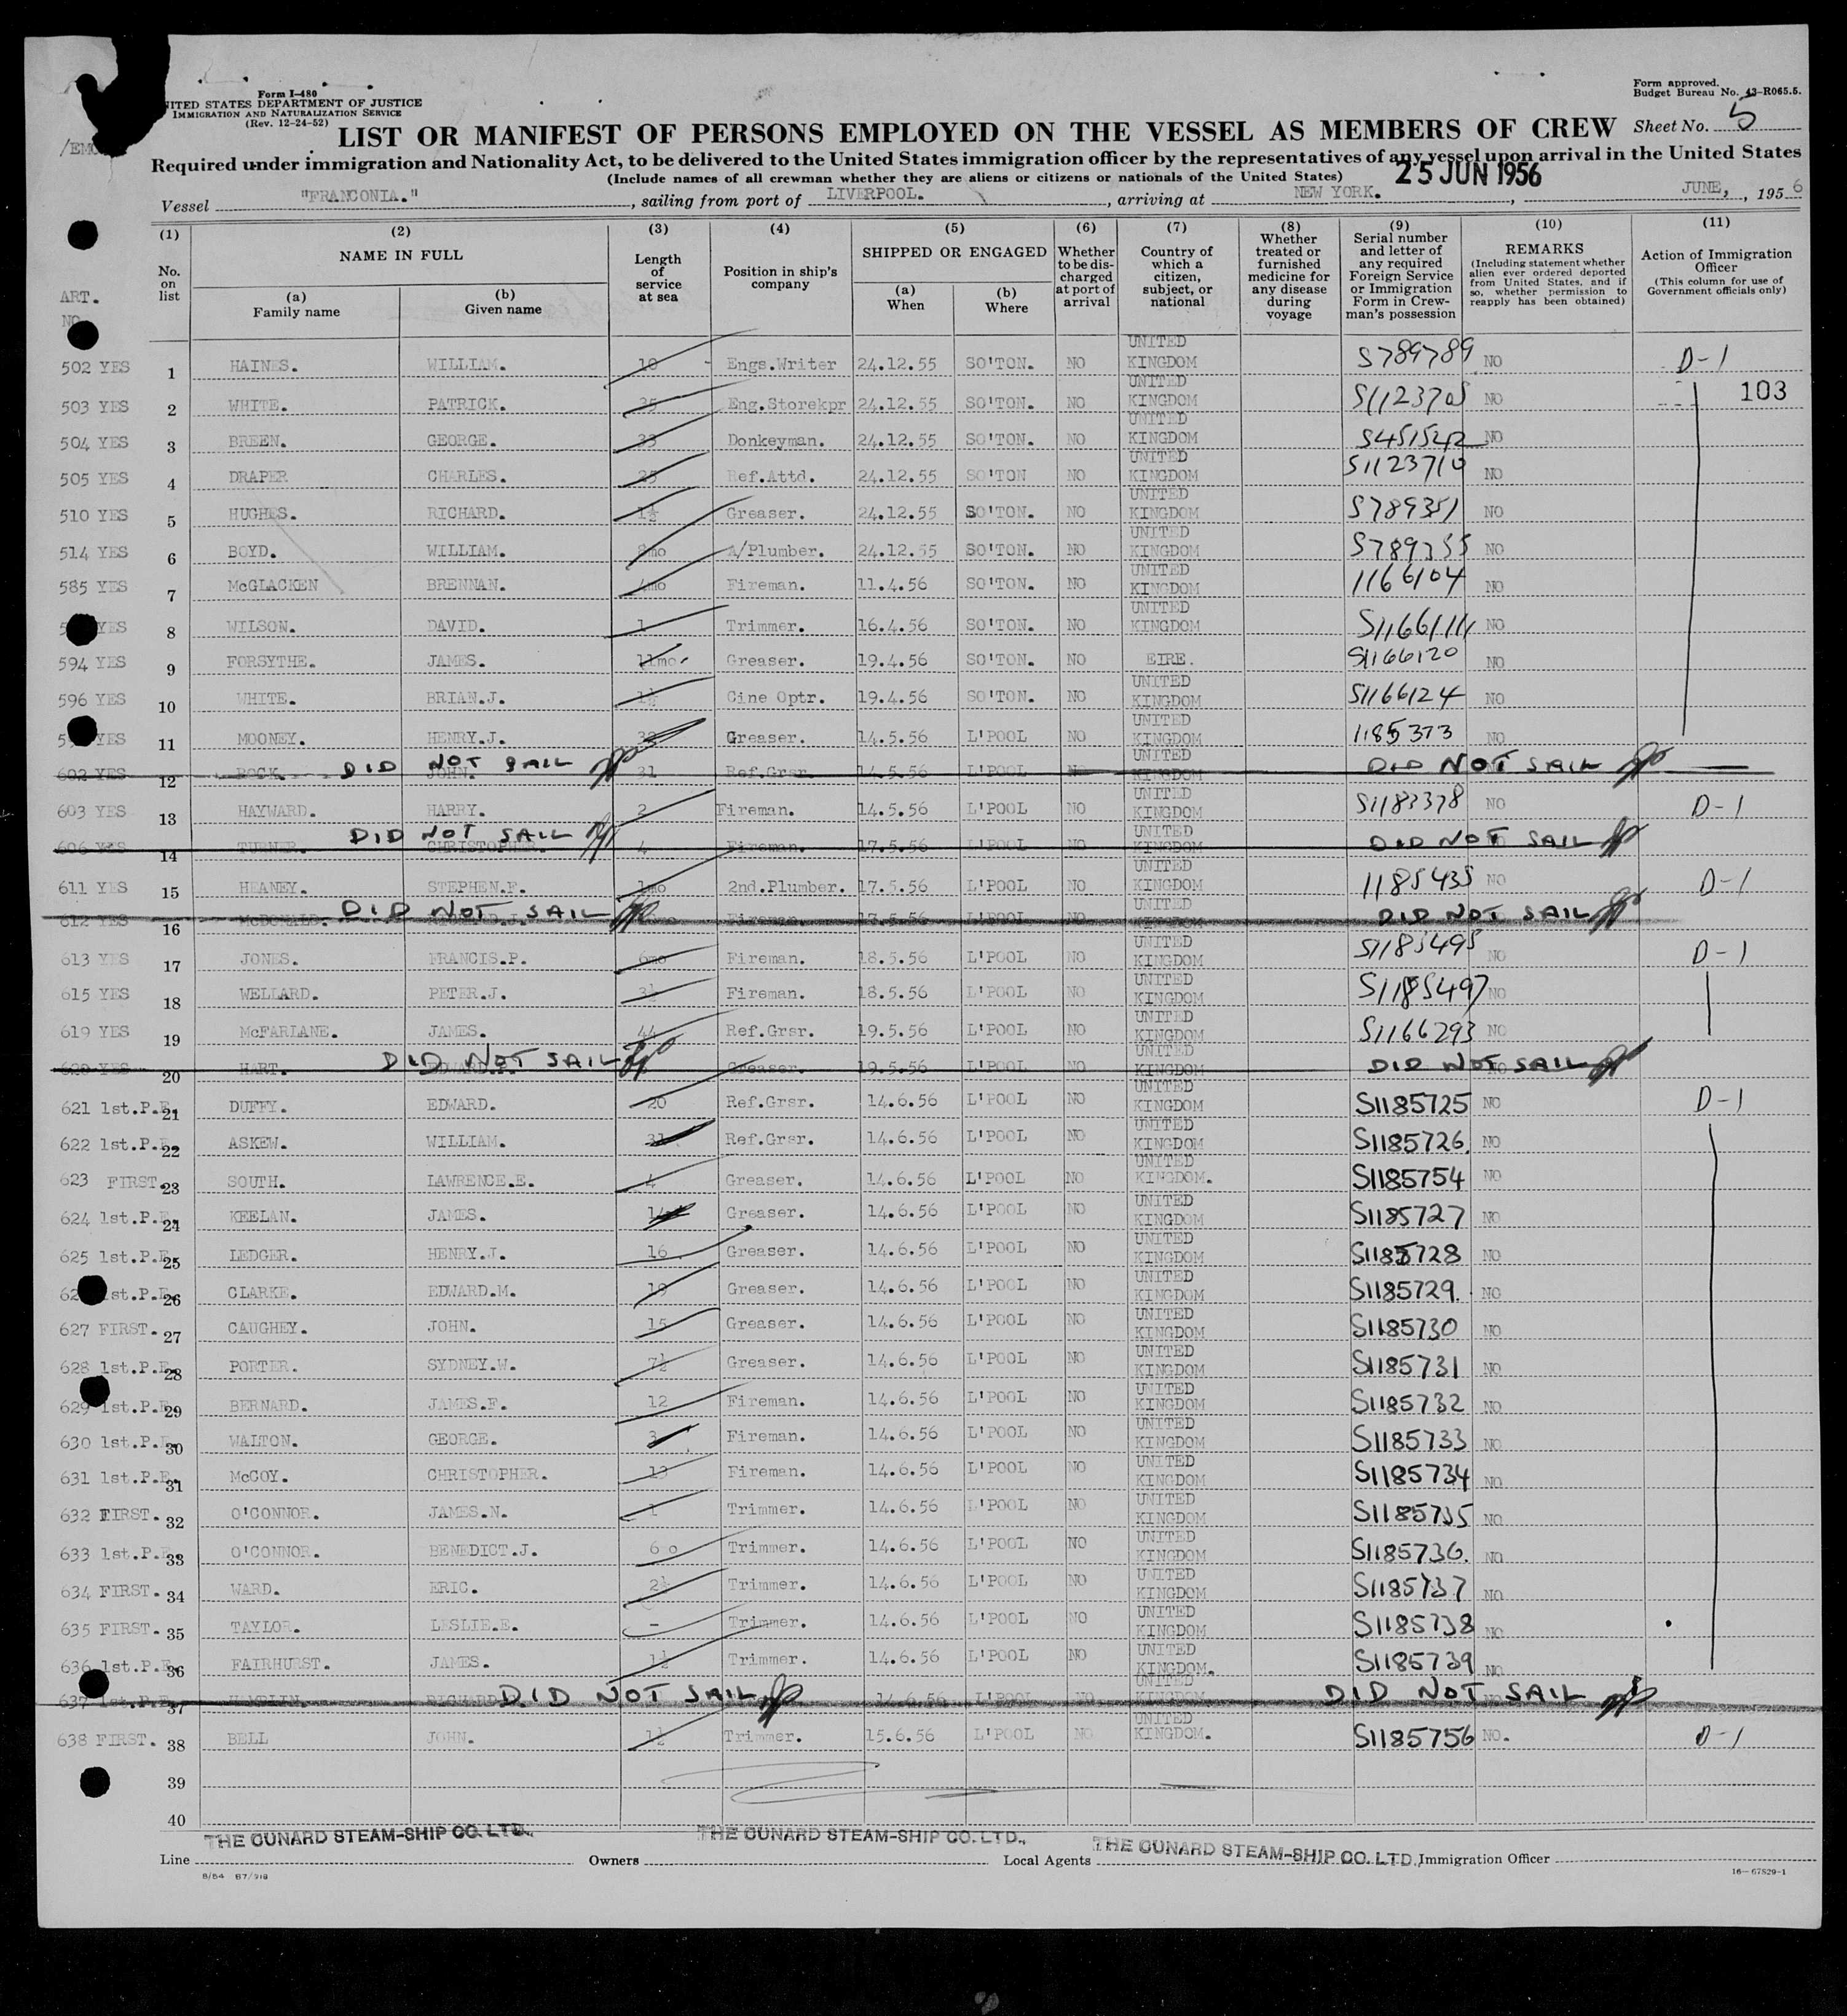 Form I-480
UNITED STATES DEPARTMENT OF JUSTICE
IMMIGRATION AND NATURALIZATION SERVICE
(Rev. 12-24-52)
Form approved.
Budget Bureau No. 43-R065.5.
LIST OR MANIFEST OF PERSONS EMPLOYED ON THE VESSEL AS MEMBERS OF CREW Sheet No. 5
Required under immigration and Nationality Act, to be delivered to the United States immigration officer by the representatives of any vessel upon arrival in the United States
(Include names of all crewman whether they are aliens or citizens or nationals of the United States) 25 JUN 1956
Vessel "FRANCONIA.", sailing from port of LIVERPOOL., arriving at NEW YORK., JUNE, 1956
(1) No. on list
(2) NAME IN FULL
(a) Family name
(b) Given name
(3) Length of service at sea
(4) Position in ship's company
(5) SHIPPED OR ENGAGED
(a) When
(b) Where
(6) Whether to be discharged at port of arrival
(7) Country of which a citizen, subject, or national
(8) Whether treated or furnished medicine for any disease during voyage
(9) Serial number and letter of any required Foreign Service or Immigration Form in Crewman's possession
(10) REMARKS (Including statement whether alien ever ordered deported from United States, and if so, whether permission to reapply has been obtained)
(11) Action of Immigration Officer (This column for use of Government officials only)
ART.
NO
502 YES 1 HAINES. WILLIAM. 10 Engs.Writer 24.12.55 SO'TON. NO UNITED KINGDOM S789789 NO D-1
503 YES 2 WHITE. PATRICK. 35 Eng.Storekpr 24.12.55 SO'TON. NO UNITED KINGDOM NO 103
504 YES 3 BREEN. GEORGE. 33 Donkeyman. 24.12.55 SO'TON. NO UNITED KINGDOM S451542 NO
505 YES 4 DRAPER CHARLES. 25 Ref.Attd. 24.12.55 SO'TON NO UNITED KINGDOM S1123710 NO
510 YES 5 HUGHES. RICHARD. 1½ Greaser. 24.12.55 SO'TON. NO UNITED KINGDOM S789351 NO
514 YES 6 BOYD. WILLIAM. 8mo A/Plumber. 24.12.55 SO'TON. NO UNITED KINGDOM NO
585 YES 7 McGLACKEN BRENNAN. 4mo Fireman. 11.4.56 SO'TON. NO UNITED KINGDOM 1166104 NO
YES 8 WILSON. DAVID. 1 Trimmer. 16.4.56 SO'TON. NO UNITED KINGDOM NO
594 YES 9 FORSYTHE. JAMES. 11mo. Greaser. 19.4.56 SO'TON. NO EIRE. S1166120 NO
596 YES 10 WHITE. BRIAN.J. 1½ Cine Optr. 19.4.56 SO'TON. NO UNITED KINGDOM S1166124 NO
YES 11 MOONEY. HENRY.J. Greaser. 14.5.56 L'POOL NO UNITED KINGDOM 1185373 NO
602 YES 12 JOHN. DID NOT SAIL 31 Ref.Grsr. 14.5.56 L'POOL NO UNITED KINGDOM DID NOT SAIL
603 YES 13 HAYWARD. HARRY. 2 Fireman. 14.5.56 L'POOL NO UNITED KINGDOM S1183378 NO D-1
606 YES 14 TURNER. CHRISTOPHER. DID NOT SAIL 4 Fireman. 17.5.56 L'POOL NO UNITED KINGDOM DID NOT SAIL
611 YES 15 HEANEY. STEPHEN.F. 1mo 2nd.Plumber. 17.5.56 L'POOL NO UNITED KINGDOM 1185435 NO D-1
612 YES 16 McDONALD. DID NOT SAIL Fireman. 17.5.56 L'POOL NO UNITED KINGDOM DID NOT SAIL
613 YES 17 JONES. FRANCIS.P. 6mo Fireman. 18.5.56 L'POOL NO UNITED KINGDOM S1185495 NO D-1
615 YES 18 WELLARD. PETER.J. 3½ Fireman. 18.5.56 L'POOL NO UNITED KINGDOM S1185497 NO
619 YES 19 McFARLANE. JAMES. 44 Ref.Grsr. 19.5.56 L'POOL NO UNITED KINGDOM S1166293 NO
620 YES 20 HART. DID NOT SAIL Greaser. 19.5.56 L'POOL NO UNITED KINGDOM DID NOT SAIL
621 1st.P.E. 21 DUFFY. EDWARD. 20 Ref.Grsr. 14.6.56 L'POOL NO UNITED KINGDOM S1185725 NO D-1
622 1st.P.E. 22 ASKEW. WILLIAM. 31 Ref.Grsr. 14.6.56 L'POOL NO UNITED KINGDOM S1185726. NO
623 FIRST. 23 SOUTH. LAWRENCE.E. 4 Greaser. 14.6.56 L'POOL NO UNITED KINGDOM. S1185754 NO
624 1st.P.E. 24 KEELAN. JAMES. 14 Greaser. 14.6.56 L'POOL NO UNITED KINGDOM S1185727 NO
625 1st.P.E. 25 LEDGER. HENRY.J. 16 Greaser. 14.6.56 L'POOL NO UNITED KINGDOM S1185728 NO
1st.P.E. 26 CLARKE. EDWARD.M. 19 Greaser. 14.6.56 L'POOL NO UNITED KINGDOM S1185729. NO
627 FIRST. 27 CAUGHEY. JOHN. 15 Greaser. 14.6.56 L'POOL NO UNITED KINGDOM S1185730 NO
628 1st.P.E. 28 PORTER. SYDNEY.W. 7½ Greaser. 14.6.56 L'POOL NO UNITED KINGDOM S1185731 NO
629 1st.P.E. 29 BERNARD. JAMES.F. 12 Fireman. 14.6.56 L'POOL NO UNITED KINGDOM S1185732 NO
630 1st.P.E. 30 WALTON. GEORGE. 3 Fireman. 14.6.56 L'POOL NO UNITED KINGDOM S1185733 NO
631 1st.P.E. 31 McCOY. CHRISTOPHER. 13 Fireman. 14.6.56 L'POOL NO UNITED KINGDOM S1185734 NO
632 FIRST. 32 O'CONNOR. JAMES.N. 1 Trimmer. 14.6.56 L'POOL NO UNITED KINGDOM S1185735 NO
633 1st.P.E. 33 O'CONNOR. BENEDICT.J. 6 Trimmer. 14.6.56 L'POOL NO UNITED KINGDOM S1185736. NO
634 FIRST. 34 WARD. ERIC. 2½ Trimmer. 14.6.56 L'POOL NO UNITED KINGDOM S1185737 NO
635 FIRST. 35 TAYLOR. LESLIE.E. - Trimmer. 14.6.56 L'POOL NO UNITED KINGDOM S1185738 NO
636 1st.P.E. 36 FAIRHURST. JAMES. 1½ Trimmer. 14.6.56 L'POOL NO UNITED KINGDOM. S1185739 NO
637 1st.P.E. 37 RICHARD DID NOT SAIL 14.6.56 L'POOL NO UNITED KINGDOM DID NOT SAIL
638 FIRST. 38 BELL JOHN. 1½ Trimmer. 15.6.56 L'POOL NO UNITED KINGDOM. S1185756 NO. D-1
39
40
Line THE CUNARD STEAM-SHIP CO. LTD., Owners THE CUNARD STEAM-SHIP CO. LTD., Local Agents THE CUNARD STEAM-SHIP CO. LTD., Immigration Officer
16-67829-1